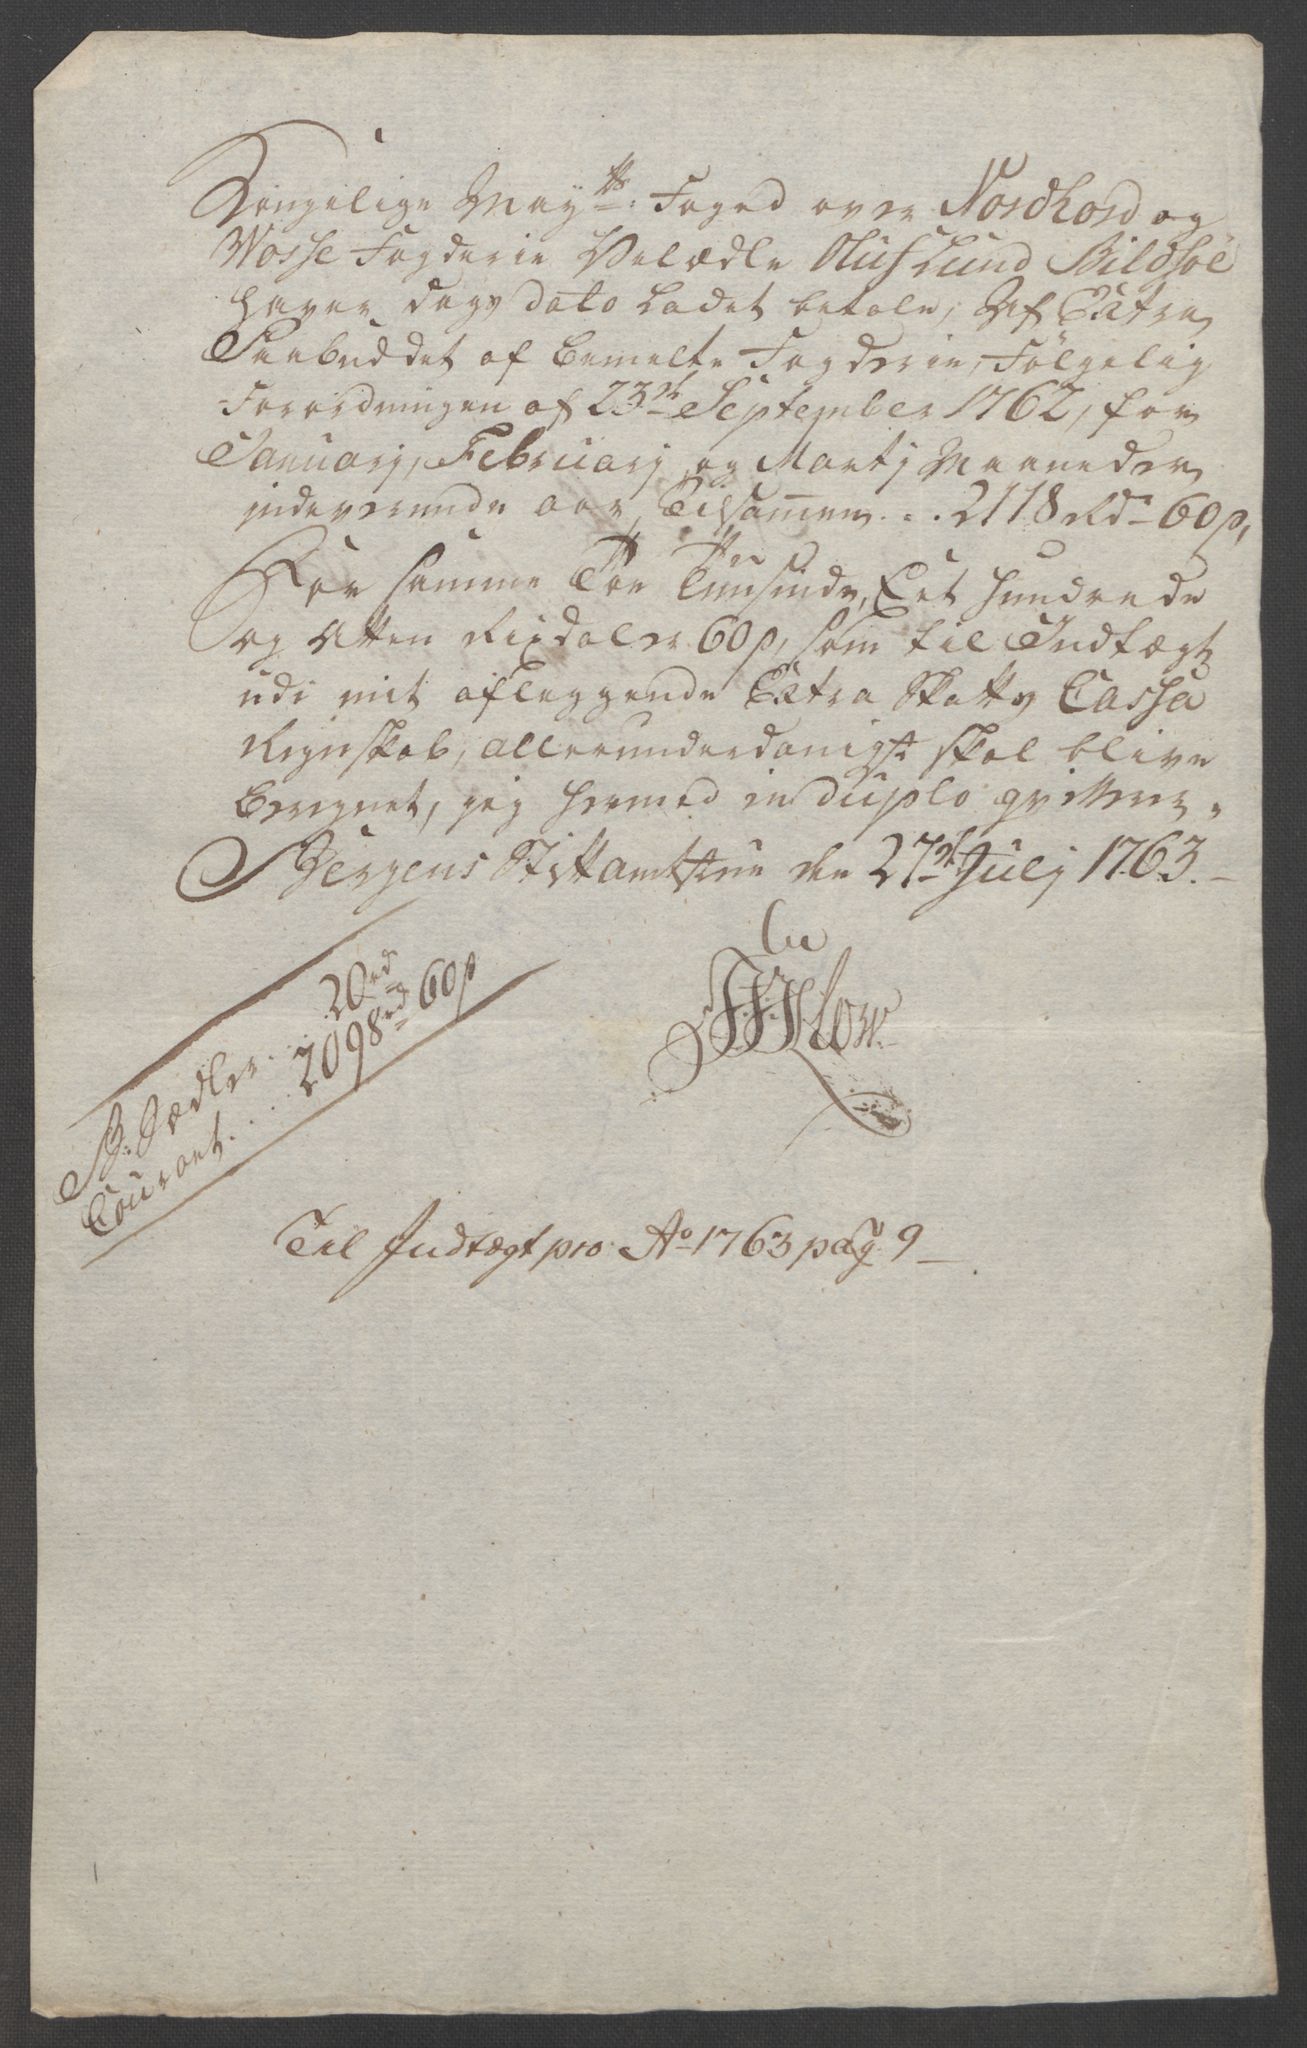 Kongelige Maytts: Foged over Nordhord og
Wosse Fogderie Velædle Oluf Lund Bildsöe
haver dags dato ladet betale, Af Extra
Paabuddet af bemelte Fogderie, Fölgelig
Forordningen af 23de September 1762, for
Januarj, Februarj og Martj Maaneder
indeværende aar, Tilsammen... 2118 Rdr 60 s,
For samme Toe Tuusinde, Eet hundrede
og Atten Rixdaler 60 s, som til Indtægt
udi mit aflæggende Extra Skatts Cassa
Regnskab, allerunderdanigst skal blive
beregnet, jeg hermed in duplo qvitterer.
Bergens Stiftamtstue den 27de Julj 1763.
B: Sædler... 20 rd
Courant.... 2098 rd 60 s
Til Indtægt pro Ao 1763 pag 9